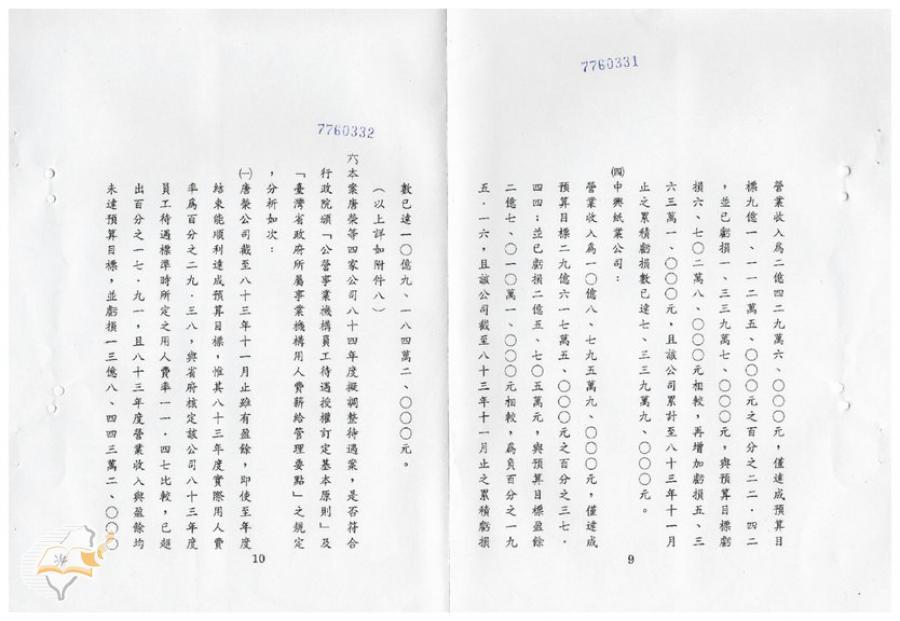 7760331
營業收入為二億四二九萬六、〇〇〇元，僅達成預算目
標九億一、一一二萬五、〇〇〇元之百分之二二．四二
，並已虧損一、三三九萬七、〇〇〇元，與預算目標虧
損六、七〇二萬八、〇〇〇元相較，再增加虧損五、三
六三萬一、〇〇〇元，且該公司累計至八十三年十一月
止之累積虧損數已達七、三三九萬九、〇〇〇元。
㈣中興紙業公司：
營業收入為一〇億八、七九五萬九、〇〇〇元，僅達成
預算目標二九億六一七萬五、〇〇〇元之百分之三七．
四四；並已虧損二億五、七〇五萬元，與預算目標盈餘
二億七、〇一〇萬一、〇〇〇元相較，為負百分之一九
五．一六，且該公司截至八十三年十一月止之累積虧損
9
7760332
數已達一〇億九、一八四萬二、〇〇〇元。
（以上詳如附件八）
六本案唐榮等四家公司八十四年度擬調整待遇案，是否符合
行政院頒「公營事業機構員工待遇授權訂定基本原則」及
「臺灣省政府所屬事業機構用人費薪給管理要點」之規定
，分析如次：
㈠唐榮公司截至八十三年十一月止雖有盈餘，即使至年度
結束能順利達成預算目標，惟其八十三年度實際用人費
率為百分之二九．三八，與省府核定該公司八十三年度
員工待遇標準時所定之用人費率一一．四七比較，已超
出百分之一七．九一，且八十三年度營業收入與盈餘均
未達預算目標，並虧損一三億八、四四三萬二、〇〇〇
10